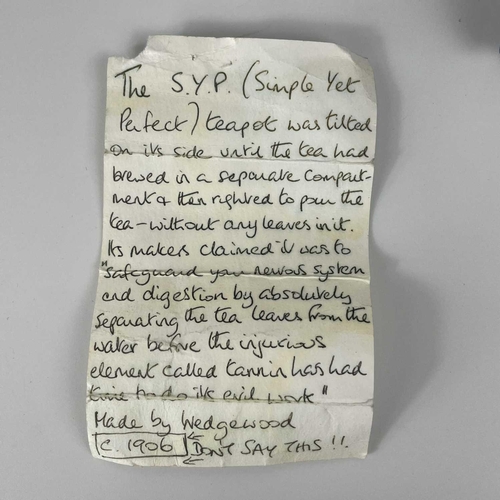 The S.Y.P. (Simple Yet
Perfect) teapot was tilted
on its side until the tea had
brewed in a separate compart-
ment & then righted to pour the
tea - without any leaves in it.
Its makers claimed it was to
"safeguard your nervous system
and digestion by absolutely
separating the tea leaves from the
water before the injurious
element called tannin has had
time to do its evil work"
Made by Wedgewood
c. 1906 DON'T SAY THIS !!